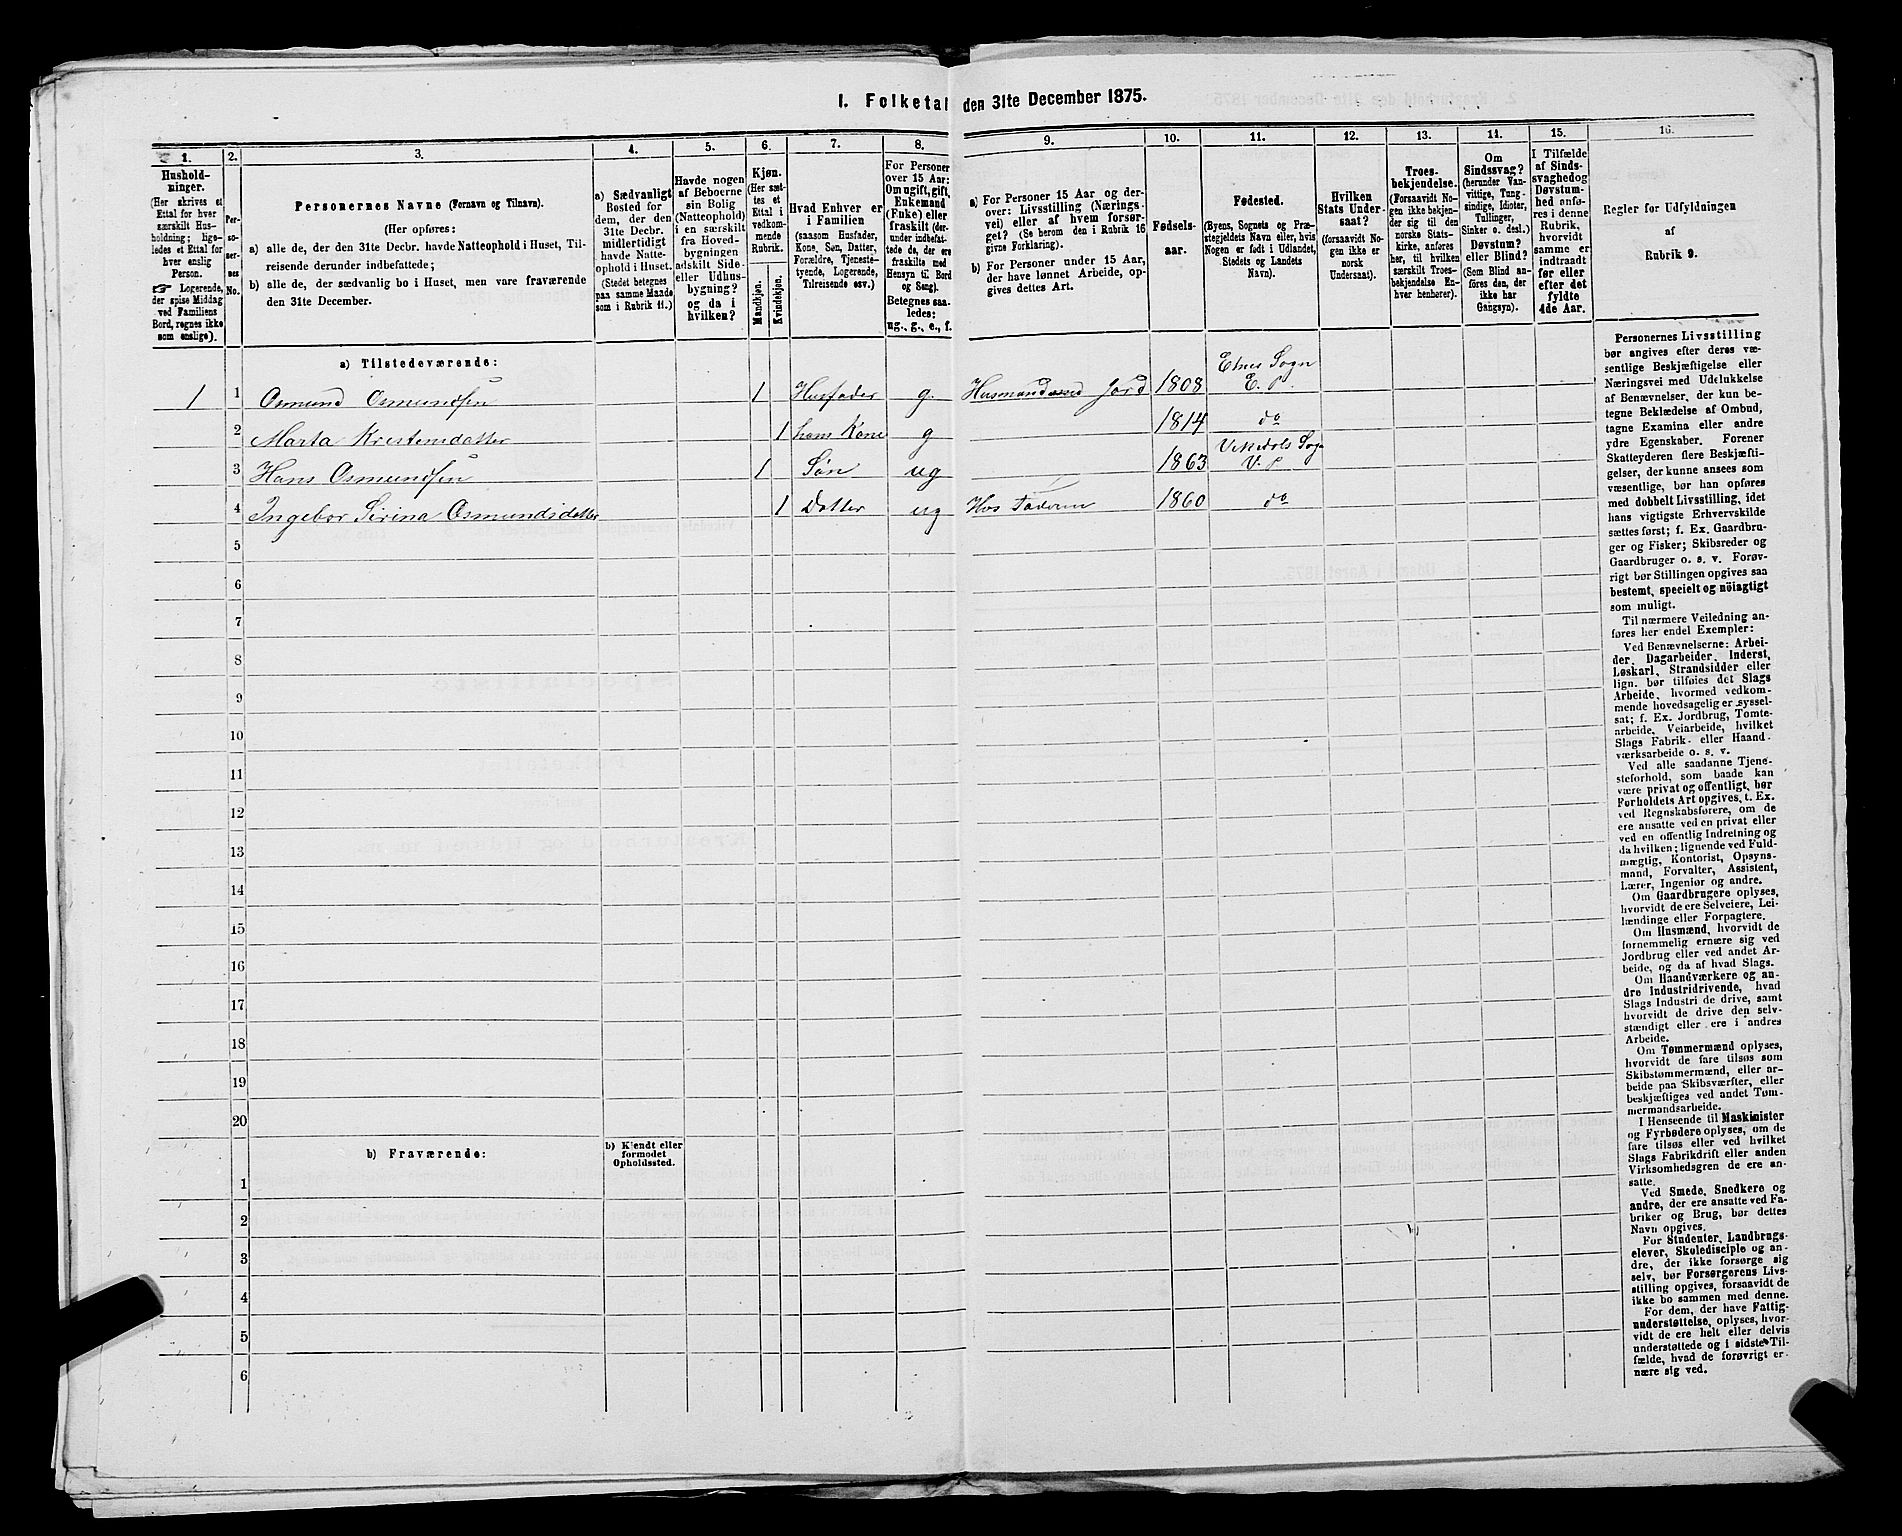 1. Folketal den 31te December 1875.
1.
Hushold-
ninger.
(Her skrives et
Ettal for hver
særskilt Hus-
holdning; lige-
ledes et Ettal for
hver enslig
Person.
☞ Logerende,
der spise Middag
ved Familiens
Bord, regnes ikke
som enslige).
2.
Per-
so-
ner-
nes
No.
3.
Personernes Navne (Fornavn og Tilnavn).
(Her opføres:
a) alle de, der den 31te Decbr. havde Natteophold i Huset, Til-
reisende derunder indbefattede;
b) alle de, der sædvanlig bo i Huset, men vare fraværende
den 31te December.
4.
a) Sædvanligt
Bosted for
dem, der den
31te Decbr.
midlertidigt
havde Natte-
ophold i Huset.
(Stedet betegnes
paa samme Maade
som i Rubrik 11.)
5.
Havde nogen
af Beboerne
sin Bolig
(Natteophold)
i en særskilt
fra Hoved-
bygningen
adskilt Side-
eller Udhus-
bygning?
og da i
hvilken?
6.
Kjøn.
(Her sæt-
tes et
Ettal i
vedkom-
mende
Rubrik.
Mandkjøn.
Kvindekjøn.
7.
Hvad Enhver er
i Familien
(saasom Husfader,
Kone, Søn, Datter,
Forældre, Tjeneste-
tyende, Logerende,
Tilreisende osv.)
8.
For Personer
over 15 Aar:
Om ugift, gift,
Enkemand
(Enke) eller
fraskilt (der-
under indbefat-
tede de, der ere
fraskilte med
Hensyn til Bord
og Seng).
Betegnes saa-
ledes:
ug., g., e., f.
9.
a) For Personer 15 Aar og der-
over: Livsstilling (Nærings-
vei) eller af hvem forsør-
get? (Se herom den i Rubrik 16
givne Forklaring).
b) For Personer under 15 Aar,
der have lønnet Arbeide, op-
gives dettes Art.
10.
Fødsels-
aar.
11.
Fødested.
(Byens, Sognets og Præ-
stegjeldets Navn eller, hvis
Nogen er født i Udlandet,
Stedets og Landets
Navn).
12.
Hvilken
Stats Under-
saat?
(forsaavidt No-
gen ikke er
norsk
Undersaat).
13.
Troes-
bekjendelse.
(Forsaavidt No-
gen ikke bekjen-
der sig til den
norske Stats-
kirke, anføres
her, til hvilken
særskilt Troes-
bekjendelse En-
hver henhører).
14.
Om
Sindssvag?
(herunder Van-
vittige, Tung-
sindige, Idioter,
Tullinger,
Sinker o. desl.)
Døvstum?
eller Blind?
(Som Blind an-
føres den, der
ikke har
Gangsyn).
15.
I Tilfælde
af Sinds-
svaghed og
Døvstum-
hed anfø-
res i denne
Rubrik,
hvorvidt
samme er
indtraadt
før eller
efter det
fyldte
4de Aar.
16.
Regler for Udfyldningen
af
Rubrik 9.
a) Tilstedeværende:
1 1 Osmund Osmundsen 1 Husfader g. Husmand med Jord 1808 Etnes Sogn E. P.
2 Marta Kristensdatter 1 hans Kone g 1814 do
3 Hans Osmundsen 1 Søn ug 1863 Vikedals Sogn V. P
4 Ingebor Serina Osmundsdatter 1 Datter ug Hos Faderen 1860 do
5
6
7
8
9
10
11
12
13
14
15
16
17
18
19
20
b) Fraværende:
b) Kjendt eller
formodet
Opholdssted.
1
2
3
4
5
6
Personernes Livsstilling
bør angives efter deres væ-
sentlige Beskjæftigelse eller
Næringsvei med Udelukkelse
af Benævnelser, der kun be-
tegne Beklædelse af Ombud,
tagne Examina eller andre
ydre Egenskaber. Forener
Skatteyderen flere Beskjæfti-
gelser, der kunne ansees som
væsentlige, bør han opføres
med dobbelt Livsstilling, idet
hans vigtigste Erhvervskilde
sættes først; f. Ex. Gaardbru-
ger og Fisker; Skibsreder og
Gaardbruger o. s. v. Forøv-
rigt bør Stillingen opgives saa
bestemt, specielt og nöiagtigt
som muligt.
Til nærmere Veiledning an-
føres her endel Exempler:
Ved Benævnelserne: Arbei-
der, Dagarbeider, Inderst,
Løskarl, Strandsidder eller
lign. bør tilføies det Slags
Arbeide, hvormed vedkom-
mende hovedsagelig er syssel-
sat; f. Ex. Jordbrug, Tomte-
arbeide, Veiarbeide, hvilket
Slags Fabrik- eller Haand-
værksarbeide o. s. v.
Ved alle saadanne Tjene-
steforhold, som baade kan
være privat og offentligt, bør
Forholdets Art opgives, t. Ex.
ved Regnskabsførere, om de
ere ansatte ved en privat eller
ved en offentlig Indretning og
da hvilken; lignende ved Fuld-
mægtig, Kontorist, Opsyns-
mand, Forvalter, Assistent,
Lærer, Ingeniør og andre.
Om Gaardbrugere oplyses,
hvorvidt de ere Selveiere, Lei-
lændinge eller Forpagtere.
Om Husmænd, hvorvidt de
fornemmelig ernære sig ved
Jordbrug eller ved andet Ar-
beide, og da af hvad Slags.
Om Haandværkere og an-
dre Industridrivende, hvad
Slags Industri de drive, samt
hvorvidt de drive den selv-
stændigt eller ere i andres
Arbeide.
Om Tømmermænd oplyses,
hvorvidt de fare tilsøs som
Skibstømmermænd, eller ar-
beide paa Skibsværfter, eller
beskjæftiges ved andet Tøm-
mermandsarbeide.
I Henseende til Maskinister
og Fyrbødere oplyses, om de
fare tilsøs eller ved hvilket
Slags Fabrikdrift eller anden
Virksomhedsgren de ere an-
satte.
Ved Smede, Snedkere og
andre, der ere ansatte ved Fa-
briker og Brug, bør dettes
Navn opgives.
For Studenter, Landbrugs-
elever, Skoledisciple og an-
dre, der ikke forsørge sig
selv, bør Forsørgerens Livs-
stilling opgives, forsaavidt de
ikke bo sammen med denne.
For dem, der have Fattig-
understøttelse, oplyses, hvor-
vidt de ere helt eller delvis
understøttede og i sidste Til-
fælde, hvad de forøvrigt er-
nære sig ved.